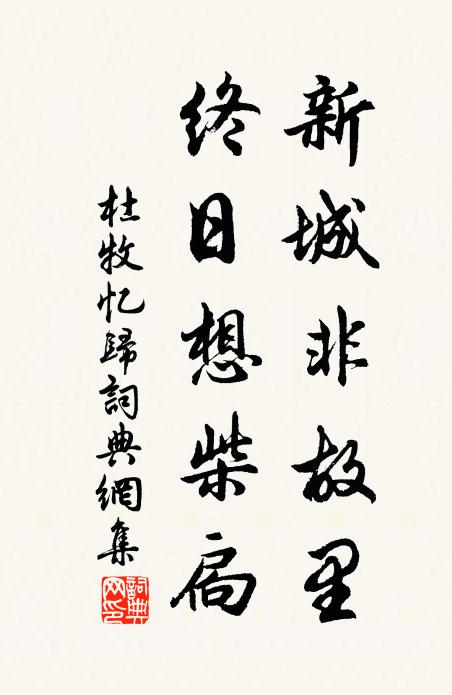 新城非故里
终日想柴扃
杜牧忆歸詞典網集
詞典网印